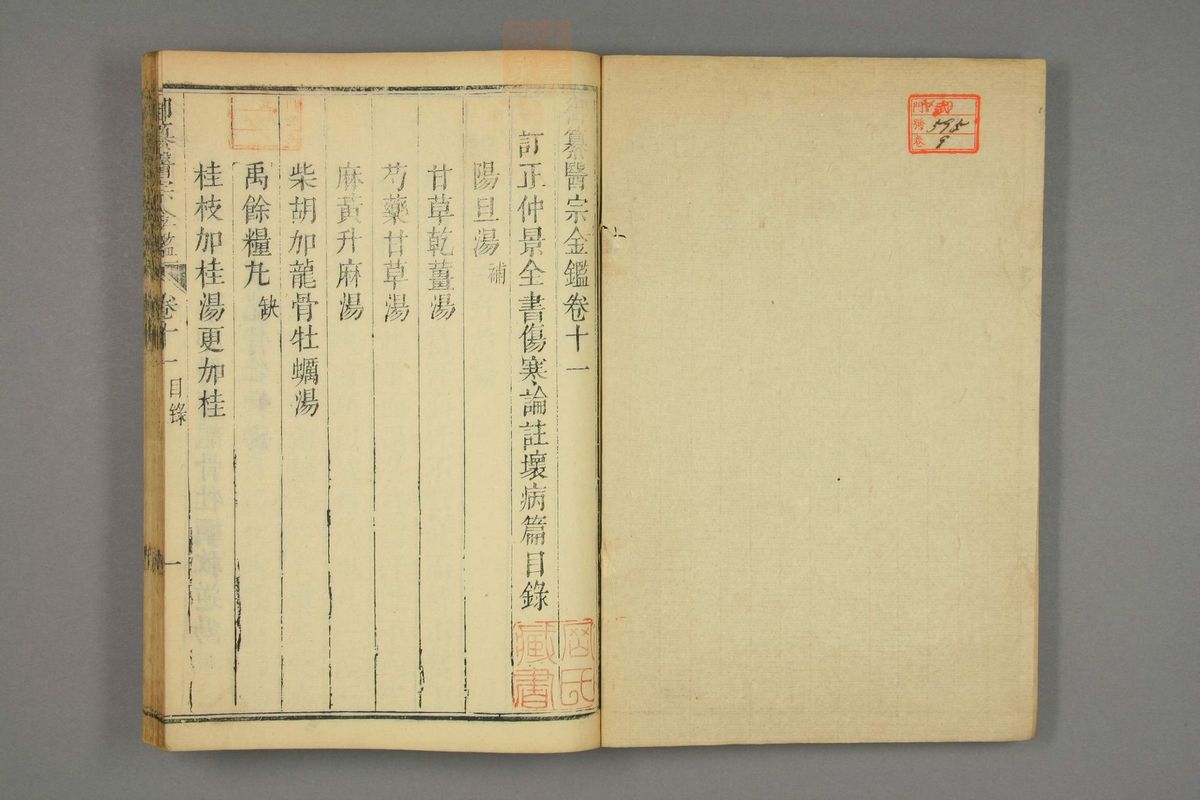 御纂醫宗金鑑卷十一
訂正仲景全書傷寒論註壞病篇目錄
陽旦湯 補
甘草乾薑湯
芍藥甘草湯
麻黃升麻湯
柴胡加龍骨牡蠣湯
禹餘糧丸 缺
桂枝加桂湯更加桂
御纂醫宗金鑑 卷十一 目錄 一
門
號 595
卷 9
藏書